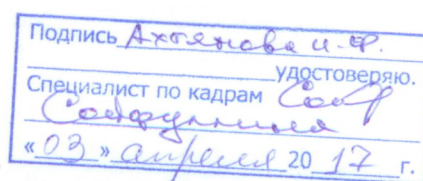 Подпись Ахтямова И.Ф.
удостоверяю.
Специалист по кадрам
«03» апреля 2017 г.